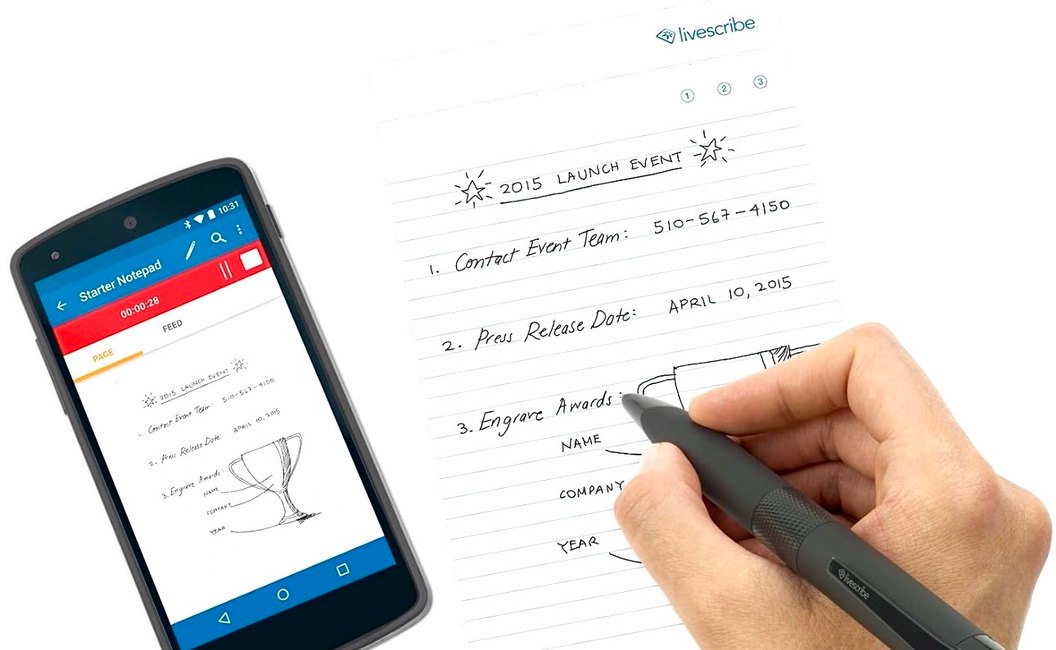 livescribe
1 2 3
2015 LAUNCH EVENT
1. Contact Event Team: 510-567-4150
2. Press Release Date: APRIL 10, 2015
3. Engrave Awards:
NAME
COMPANY
YEAR
livescribe
10:31
Starter Notepad
00:00:28
PAGE FEED
2015 LAUNCH EVENT
1. Contact Event Team: 510-567-4150
2. Press Release Date: APRIL 10, 2015
3. Engrave Awards:
NAME
COMPANY
YEAR